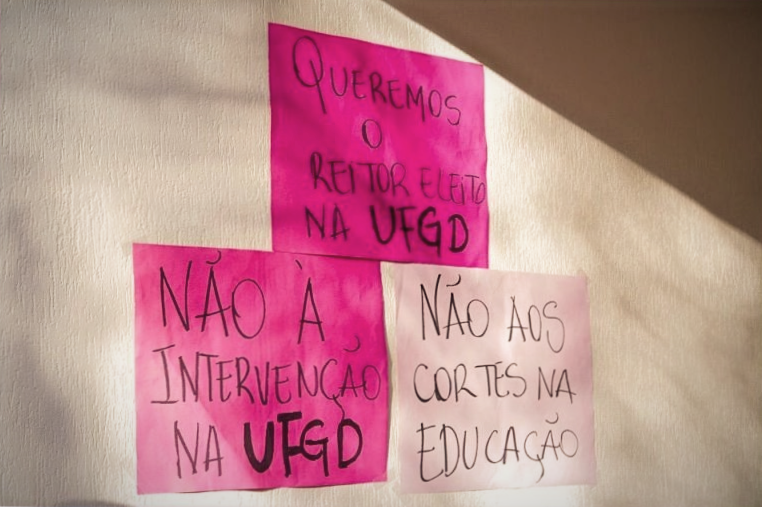 QUEREMOS
O
REITOR ELEITO
NA UFGD
NÃO À
INTERVENÇÃO
NA UFGD
NÃO AOS
CORTES NA
EDUCAÇÃO